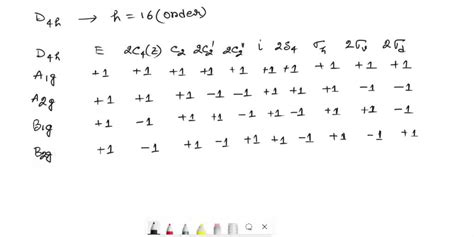 D4h → h = 16 (order)
D4h E 2C4(z) C2 2C2' 2C2" i 2S4 σh 2σv 2σd
A1g +1 +1 +1 +1 +1 +1 +1 +1 +1 +1
A2g +1 +1 +1 -1 -1 +1 +1 +1 -1 -1
B1g +1 -1 +1 +1 -1 +1 -1 +1 +1 -1
B2g +1 -1 +1 -1 +1 +1 -1 +1 -1 +1